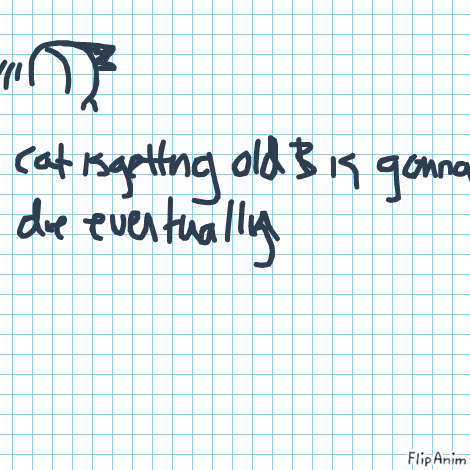 cat is getting old & is gonna
die eventually
FlipAnim